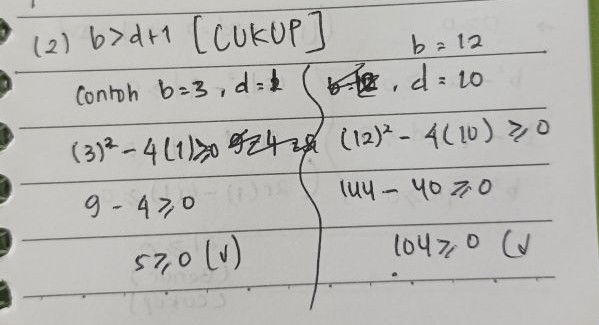 (2) b>d+1 [CUKUP]
b = 12
Contoh b=3, d=1
, d = 10
(3)² - 4(1)⩾0
(12)² - 4(10) ⩾ 0
9 - 4 ⩾ 0
144 - 40 ⩾ 0
5 ⩾ 0 (√)
104 ⩾ 0 (√